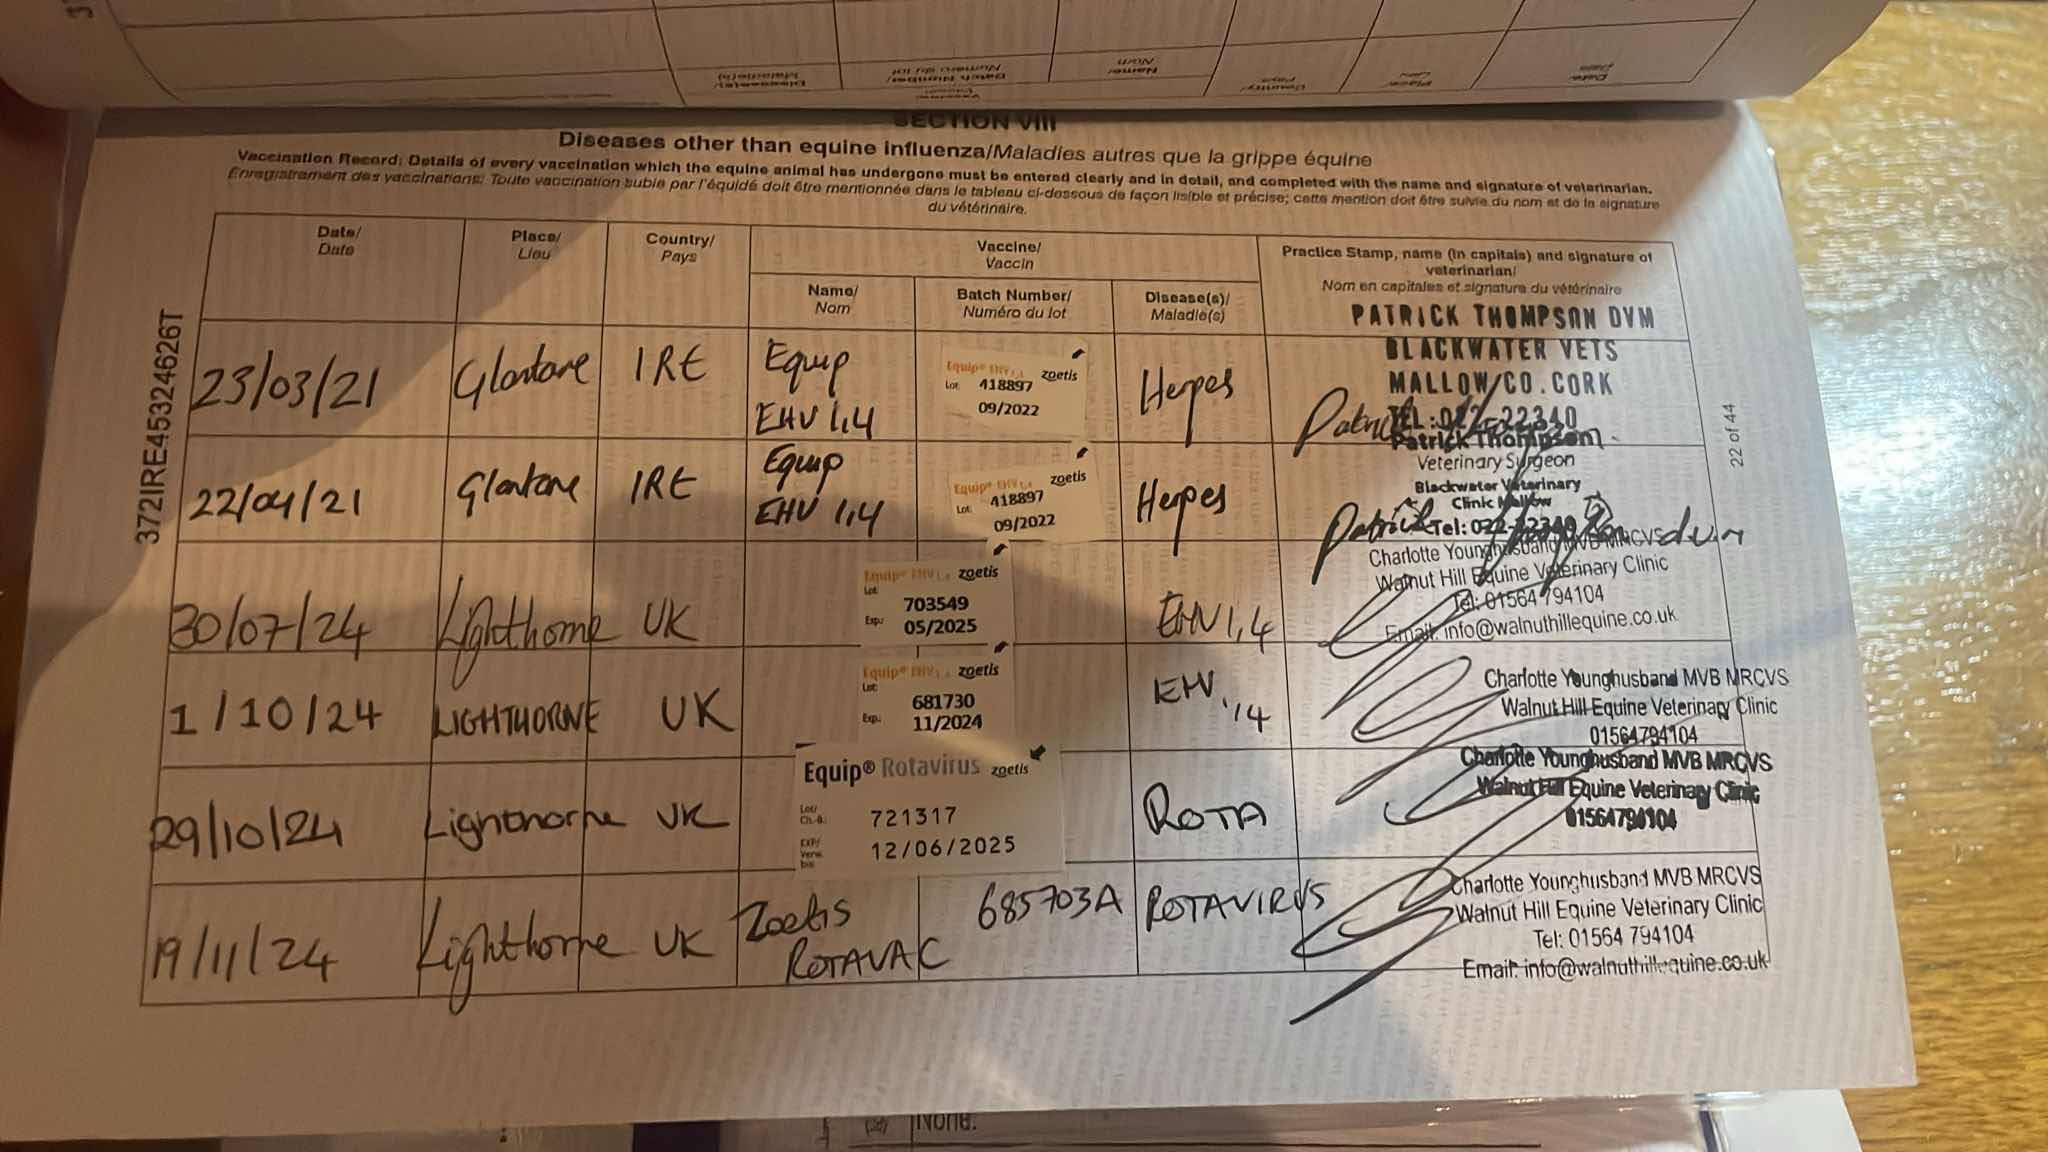 Disease(s)/
Maladie(s)
Vaccine/
Vaccin
Batch Number/
Numéro du lot
Name/
Nom
Country/
Pays
Place/
Lieu
Date/
Date
SECTION VIII
Diseases other than equine influenza/Maladies autres que la grippe équine
Vaccination Record: Details of every vaccination which the equine animal has undergone must be entered clearly and in detail, and completed with the name and signature of veterinarian.
Enregistrement des vaccinations: Toute vaccination subie par l'équidé doit être mentionnée dans le tableau ci-dessous de façon lisible et précise; cette mention doit être suivie du nom et de la signature
du vétérinaire.
Date/
Date
Place/
Lieu
Country/
Pays
Vaccine/
Vaccin
Name/
Nom
Batch Number/
Numéro du lot
Disease(s)/
Maladie(s)
Practice Stamp, name (in capitals) and signature of
veterinarian/
Nom en capitales et signature du vétérinaire
23/03/21
Glantane
IRE
Equip
EHV 1,4
Equip® EHV 1,4 zoetis
Lot: 418897
09/2022
Herpes
PATRICK THOMPSON DVM
BLACKWATER VETS
MALLOW/CO.CORK
TEL:022-22340
Patrick
22/04/21
Glantane
IRE
Equip
EHV 1,4
Equip® EHV 1,4 zoetis
Lot: 418897
09/2022
Herpes
Patrick Thompson
Veterinary Surgeon
Blackwater Veterinary
Clinic Mallow
Tel: 022-22340
Patrick Thompson dvm
30/07/24
Lighthorne
UK
Equip® EHV 1,4 zoetis
Lot:
703549
Exp.: 05/2025
EHV 1,4
Charlotte Younghusband MVB MRCVS
Walnut Hill Equine Veterinary Clinic
Tel: 01564 794104
Email: info@walnuthillequine.co.uk
1/10/24
LIGHTHORNE
UK
Equip® EHV 1,4 zoetis
Lot:
681730
Exp.: 11/2024
EHV 1,4
Charlotte Younghusband MVB MRCVS
Walnut Hill Equine Veterinary Clinic
01564794104
29/10/24
Lighthorne
UK
Equip® Rotavirus zoetis
Lot/
Ch.-B.: 721317
EXP/
Verw.
bis: 12/06/2025
ROTA
Charlotte Younghusband MVB MRCVS
Walnut Hill Equine Veterinary Clinic
01564794104
19/11/24
Lighthorne
UK
Zoetis
ROTAVAC
685703A
ROTAVIRUS
Charlotte Younghusband MVB MRCVS
Walnut Hill Equine Veterinary Clinic
Tel: 01564 794104
Email: info@walnuthillequine.co.uk
372IRE45324626T
22 of 44
None.